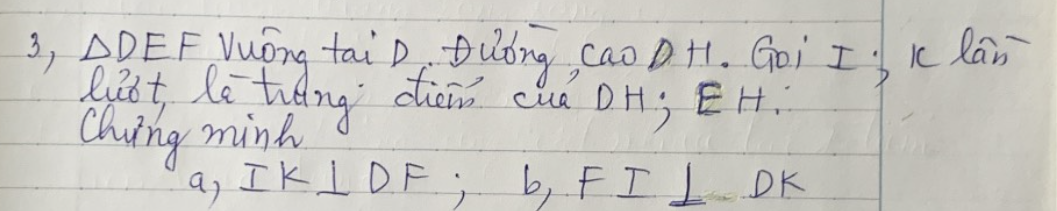 3, ΔDEF Vuông tại D. Đường cao DH. Gọi I; K lần
lượt là trung điểm của DH; EH.
Chứng minh
a, IK⊥DF; b, FI⊥DK